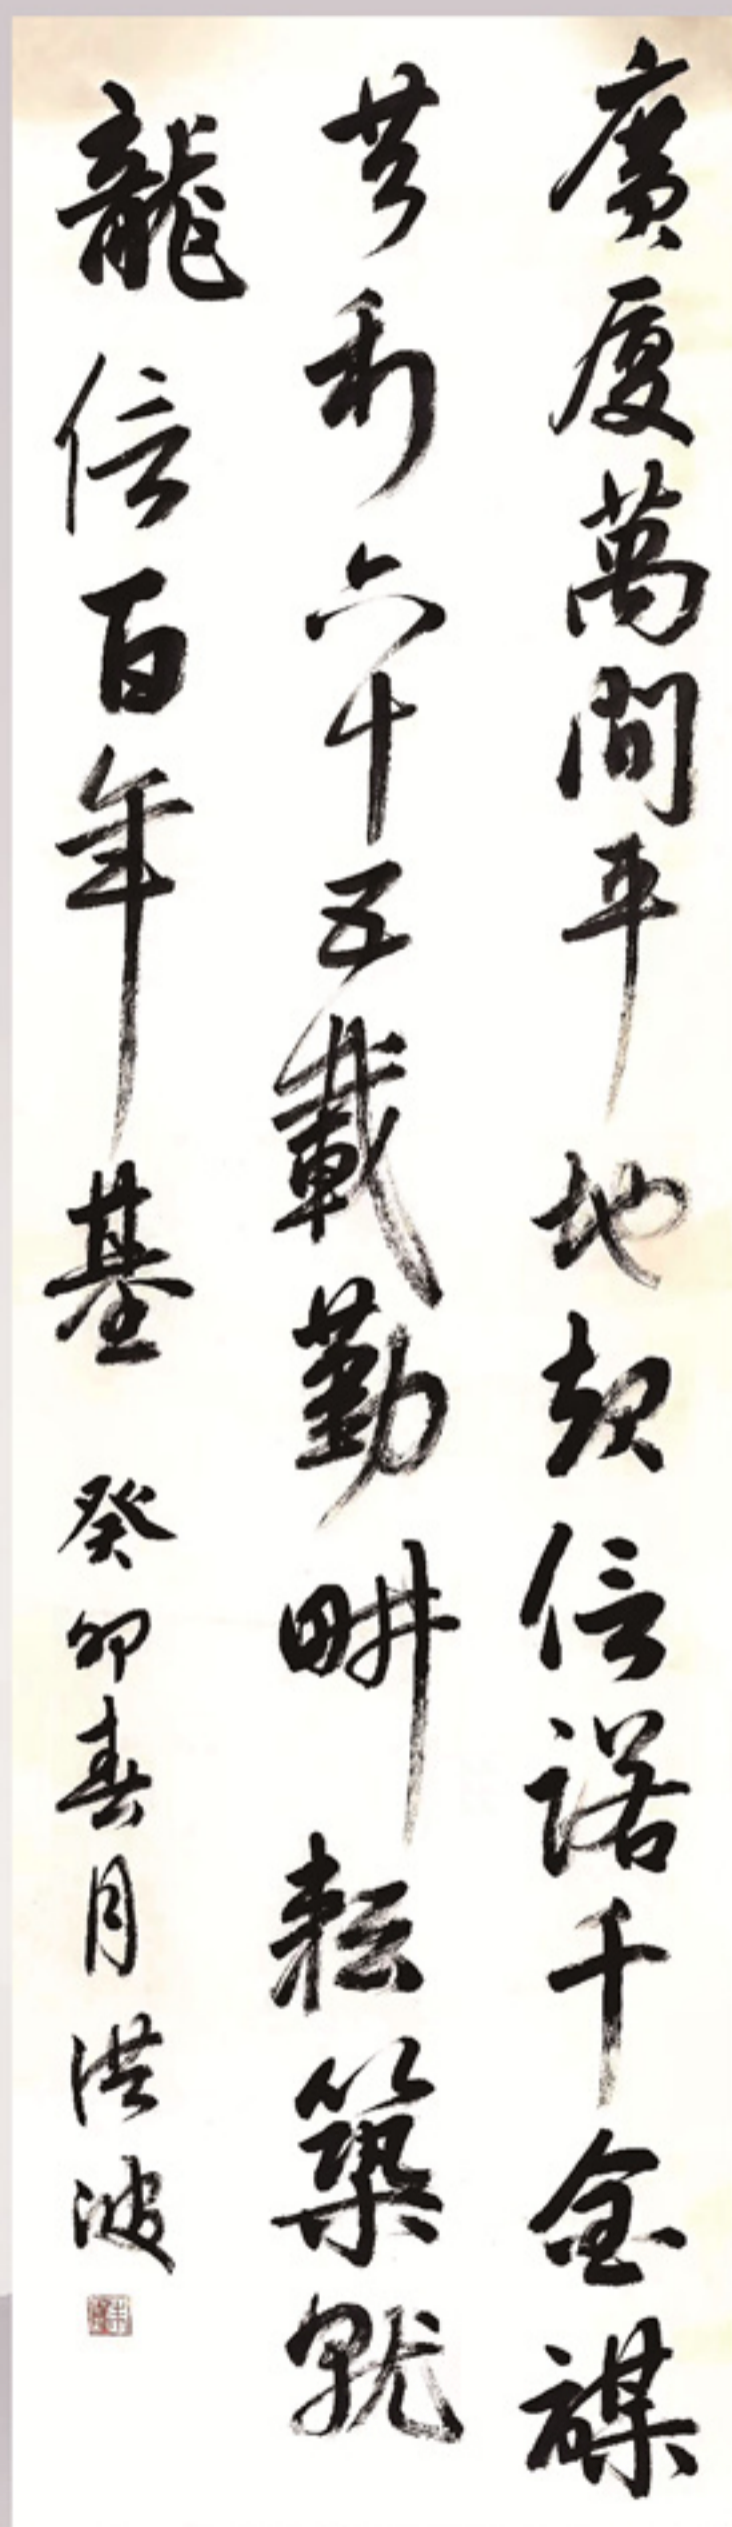 廣廈萬間平地起信諾千金謀
共利六十五載勤耕耘築就
龍信百年基
癸卯春月洪波